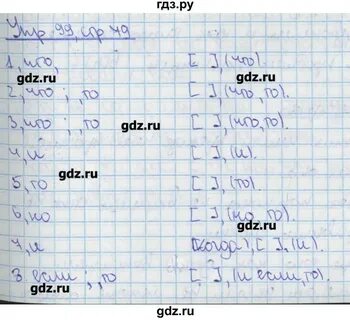 гдз.ру
Упр 99, стр 49
1, что, [ ], (что).
2, что ; , то [ ], (что, то).
3, что ; , то [ ], (что, то).
4, и [ ], (и).
5, то [ ], (то).
6, но [ ], (но, то).
7, и (когда), [ ], (и).
8. если ; , то [ ], (и если, то).
gdz.ru
gdz.ru
gdz.ru
gdz.ru
gdz.ru
gdz.ru
gdz.ru
gdz.ru